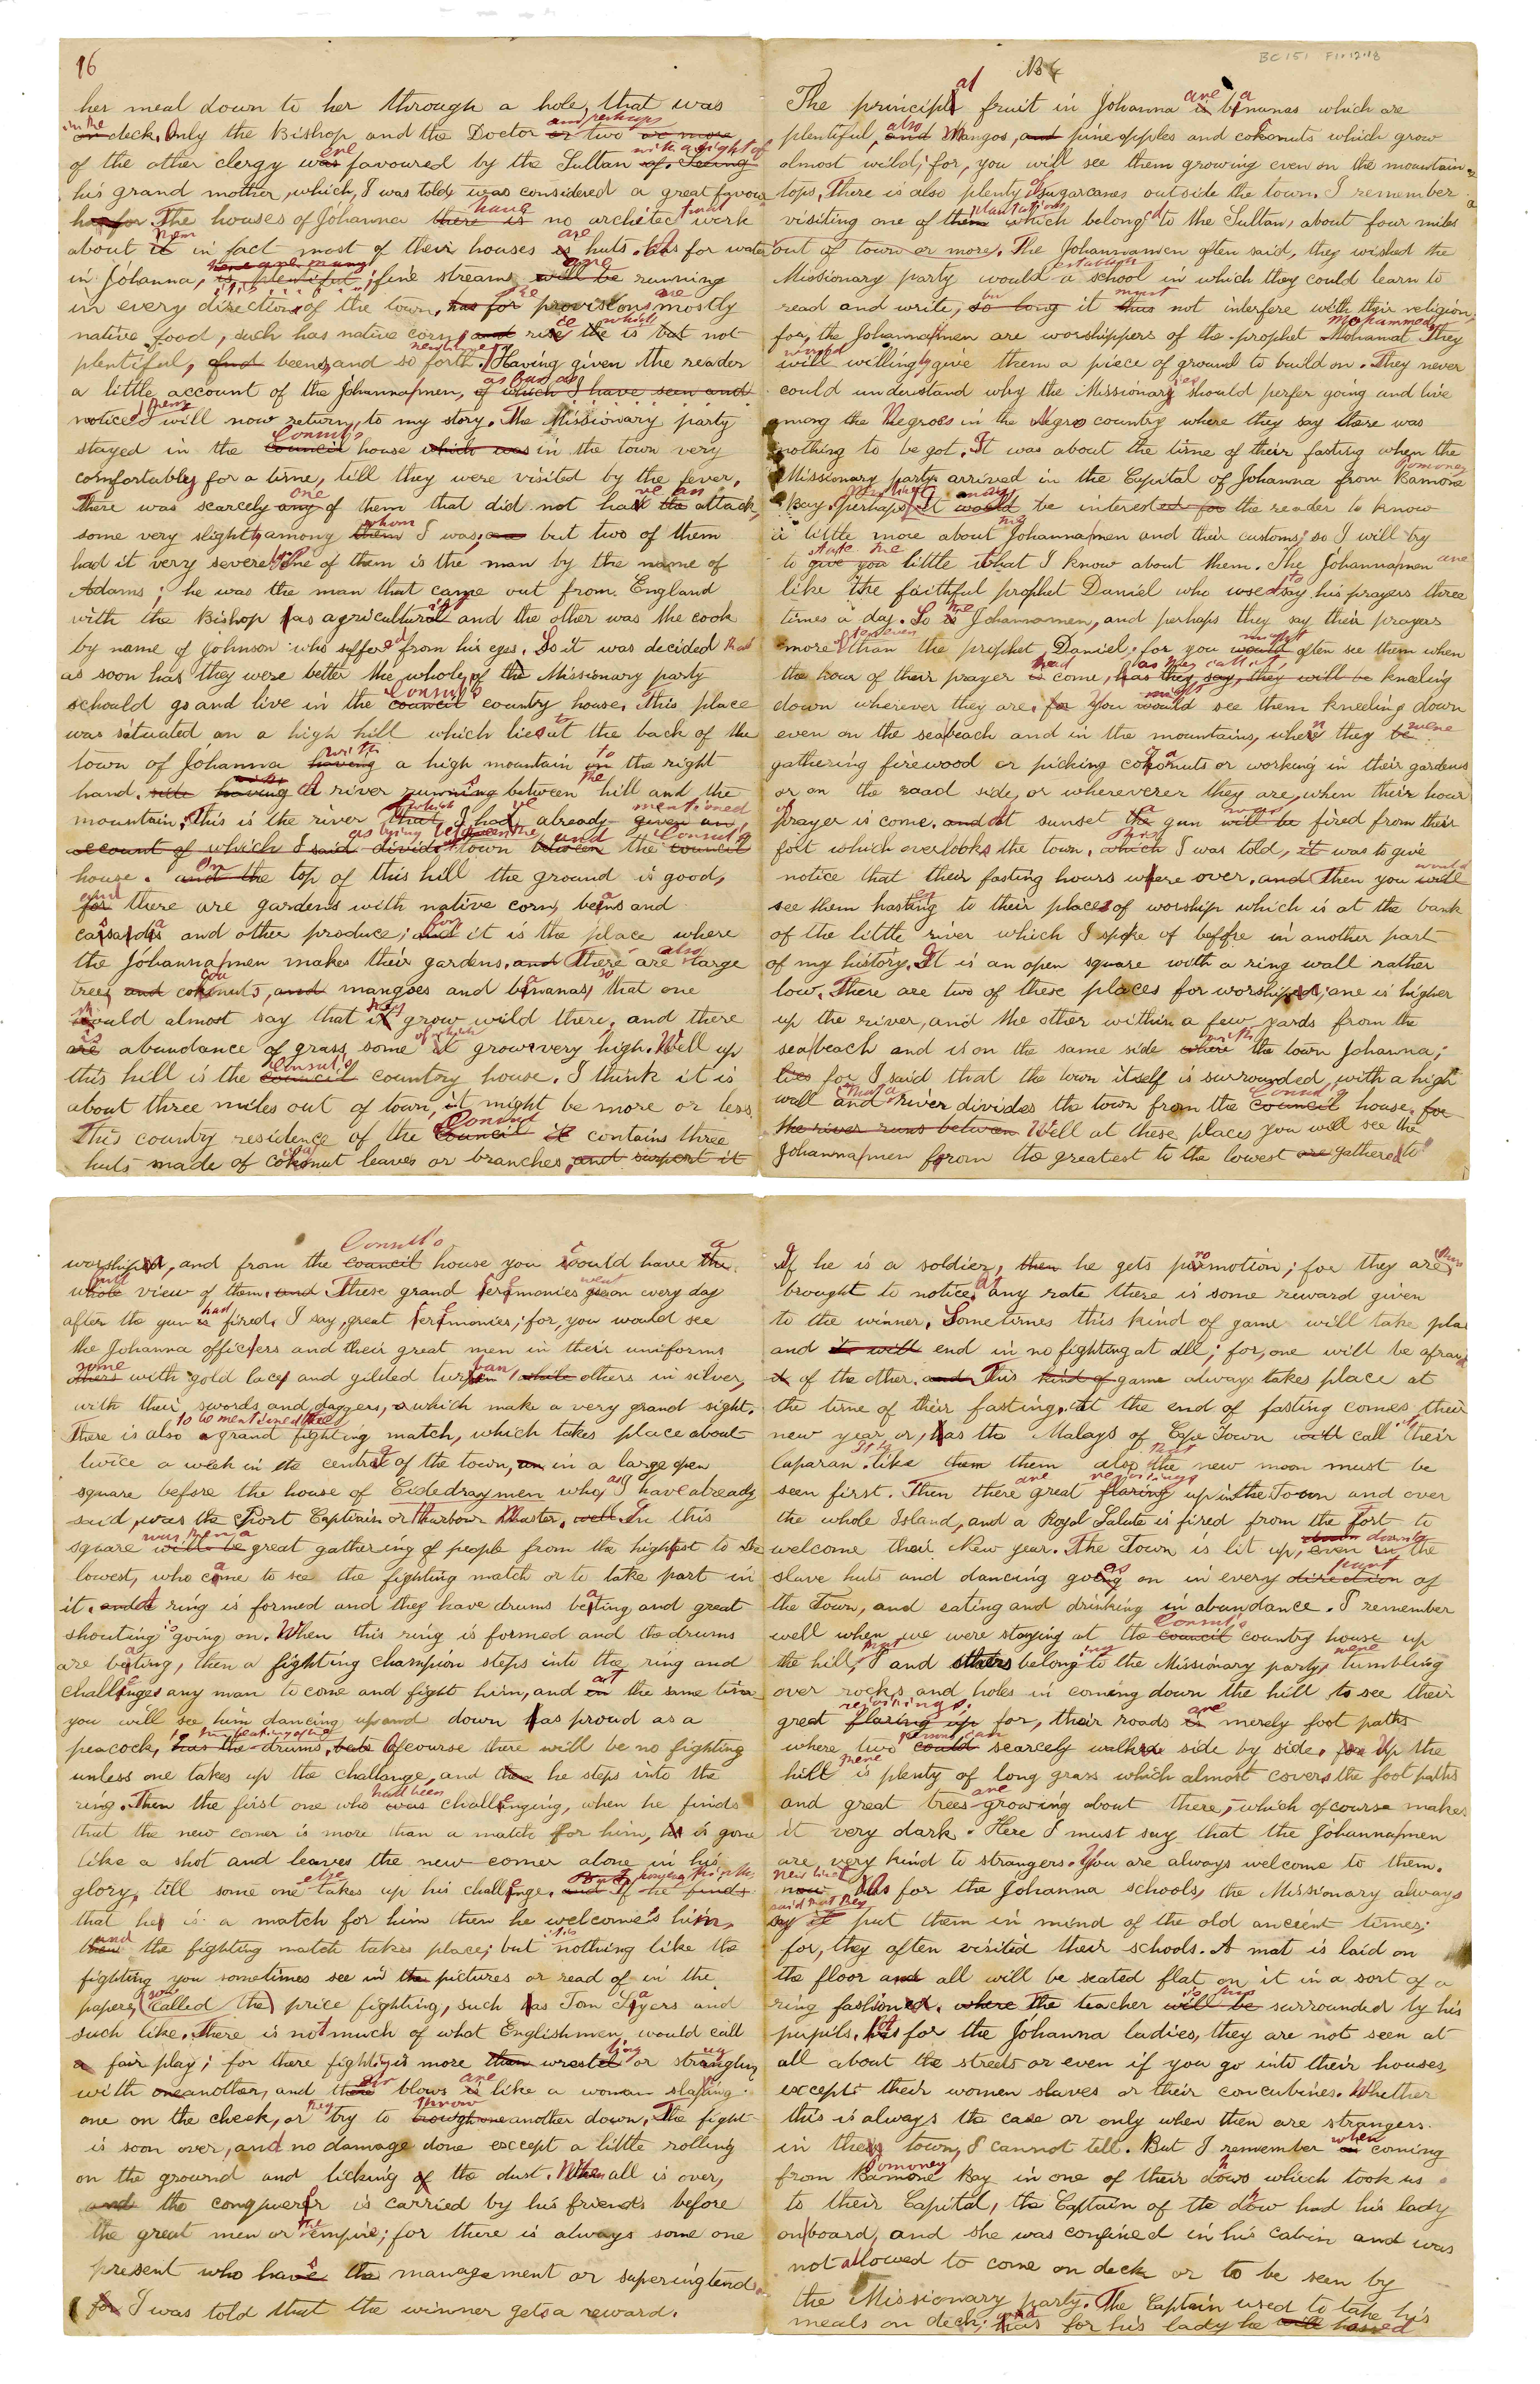 16
her meal down to her through a hole, that was
in the on deck. Only the Bishop and the Doctor and perhaps or two or more
of the other clergy were favoured by the Sultan with a sight of of seeing
his grand mother, which, I was told, was considered a great favour
has for The houses of Johanna have there is no architectural work
about them it in fact most of their houses are is huts. As for water
in Johanna, there are many is plentiful; fine streams are will be running
in every direction of the town, has for the provisions are mostly
native food, such has native corn and rice the which is but not
plentiful, and beens, and so forth. Having given the reader
a little account of the Johanna men, as far as I of which I have seen and
noticed them I will now return, to my story. The Missionary party
stayed in the Consul's council house which was in the town very
comfortably for a time, till they were visited by the fever.
There was scarcely one any of them that did not have an the attack,
some very slight, among whom them I was; but two of them
had it very severe. One of them is the man by the name of
Adams; he was the man that came out from England
with the Bishop as agricultural and the other was the cook
by name of Johnson who suffered from his eyes. So it was decided that
as soon has they were better the whole of the Missionary party
schould go and live in the Consul's council country house. This place
was situated on a high hill which lies at the back of the
town of Johanna with having a high mountain to on the right
hand. side having A river running between the hill and the
mountain; this is the river which that I have already mentioned given an
account of which I said divide as lying between the town between and the Consul's council
house. and the On top of this hill the ground is good,
for and there are gardens with native corn, beans and
cassada and other produce; and for it is the place where
the Johanna men makes their gardens. and There are also large
trees and cocoanuts, and mangoes and bananas, so that one
would almost say that they it grow wild there, and there
are is abundance of grass, some of which it grows very high. Well up
this hill is the Consul's council country house. I think it is
about three miles out of town, it might be more or less
This country residence of the Consul council it contains three
huts made of cocoanut leaves or branches, and surport it
BC 151 F1.12.18
The principal fruit in Johanna are is bananas which are
plentiful, also and Mangos, and pine apples and cokonuts which grow
almost wild; for, you will see them growing even on the mountain
tops. There is also plenty of sugarcanes outside the town. I remember
visiting one of them plantations which belonged to the Sultan, about four miles
out of town or more. The Johanna men often said, they wished the
Missionary party would establish a school in which they could learn to
read and write, so long but it must thus not interfere with their religion;
for, the Johanna men are worshippers of the prophet Mohammed Mohamat They
will would willingly give them a piece of ground to build on. They never
could understand why the Missionaries should perfer going and live
among the Negroes in the Negro country where they say there was
nothing to be got. It was about the time of their fasting when the
Missionary party arrived in the Capital of Johanna from Pomoney Bamone
Bay. Perhaps it may would be interested for the reader to know
a little more about Johanna men and their customs; so I will try
to state the give you little what I know about them. The Johanna men are
like the faithful prophet Daniel who used to say his prayers three
times a day. So is the Johanna men, and perhaps they say their prayers
more often even than the prophet Daniel; for you might would often see them when
the hour of their prayer had is come, has they say, they will be as they call it, kneeling
down wherever they are. for You might would see them kneeling down
even on the sea beach and in the mountains, when they were be
gathering firewood or picking cokonuts or working in their gardens
or on the road side, or whereverer they are, when their hour
of Prayer is come. and At sunset the a gun was will be fired from their
fort which overlooks the town. which This I was told, it was to give
notice that their fasting hours were over. and Then you would will
see them hasting to their places of worship which is at the bank
of the little river which I spoke of before in another part
of my history. It is an open square with a ring wall rather
low. There are two of these places for worship; one is higher
up the river, and the other within a few yards from the
sea beach and is on the same side with where the town Johanna;
lies for I said that the town itself is surrounded, with a high
wall and that a river divides the town from the Consul's council house. for
the river runs between Well at these places you will see the
Johanna men from the greatest to the lowest are gathered to
worship, and from the Consul's council house you could have a the
whole full view of them. and These grand ceremonies went goe on every day
after the gun is had fired. I say, great ceremonies; for, you would see
the Johanna officers and their great men in their uniforms
some others with gold lace and gilded turban, while others in silver,
with their swords and daggers, which make a very grand sight.
There is also to be mentioned the a grand fighting match, which takes place about
twice a week in the centre of the town, in a large open
square before the house of Eidedraymen who, as I have already
said, was the Port Captain or Harbour Master. well In this
square was then a will be great gathering of people from the highest to the
lowest, who came to see the fighting match or to take part in
it. and A ring is formed and they have drums beating and great
shouting is going on. When this ring is formed and the drums
are beating, then a fighting champion steps into the ring and
challenges any man to come and fight him, and at on the same time
you will see him dancing up and down as proud as a
peacock, to the beating of the has the drums, bate Of course there will be no fighting
unless one takes up the challange, and then he steps into the
ring. Then the first one who had been was challenging, when he finds
that the new comer is more than a match for him, he is gone
like a shot and leaves the new comer alone in his
glory, till some one else takes up his challenge. and If he finds
that he is a match for him then he welcomes him,
then and the fighting match takes place; but it is nothing like the
fighting you sometimes see in the pictures or read of in the
papers, (called the) price fighting, such as Tom Sayers and
such like. There is not much of what Englishmen would call
a fair play; for there fighting is more then wrestling or strangling
with oneanother, and there blows are is like a woman slaping
one on the cheek, or they try to throw oneanother down. The fight
is soon over, and no damage done except a little rolling
on the ground and licking of the dust. When all is over,
and the conqueror is carried by his friends before
the great men or the empire; for there is always some one
present who have has the management or superingtend
for I was told that the winner gets a reward.
If he is a soldier, then he gets promotion; for they are thus
brought to notice. At any rate there is some reward given
to the winner. Sometimes this kind of game will take place
and it will end in no fighting at all; for, one will be afraid
it of the other. and This kind of game always takes place at
the time of their fasting. At the end of fasting comes their
new year or, as the Malays of Cape Town will call it, their
Caparan. like them them also that the new moon must be
seen first. Then there are great rejoicings flaring up in the Town and over
the whole Island, and a Royal Salute is fired from the Fort to
welcome their New year. The Town is lit up, even in down to the
slave huts and dancing goes on in every part direction of
the Town, and eating and drinking in abundance. I remember
well when we were staying at the Consul's council country house up
the hill, that I and others belonging to the Missionary party, were tumbling
over rocks and holes in coming down the hill to see their
great rejoicings flaring up for, their roads are is merely foot paths
where two persons can could scarcely walk side by side. for Up the
hill there is plenty of long grass which almost covers the foot paths
and great trees are growing about there, which of course makes
it very dark. Here I must say that the Johanna men
are very kind to strangers. You are always welcome to them.
now As for the Johanna schools, the Missionary always
said that they say it put them in mind of the old ancient times;
for, they often visited their schools. A mat is laid on
the floor and all will be seated flat on it in a sort of a
ring fashioned. where The teacher is thus will be surrounded by his
pupils. As for the Johanna ladies, they are not seen at
all about the streets or even if you go into their houses,
except their women slaves or their concubines. Whether
this is always the case or only when then are strangers
in their town, I cannot tell. But I remember when on coming
from Pomoney Bamone Bay in one of their dows which took us
to their Capital, the Captain of the dow had his lady
on board, and she was confined in his cabin and was
not allowed to come on deck or to be seen by
the Missionary party. The Captain used to take his
meals on deck; and as for his lady he will hassed